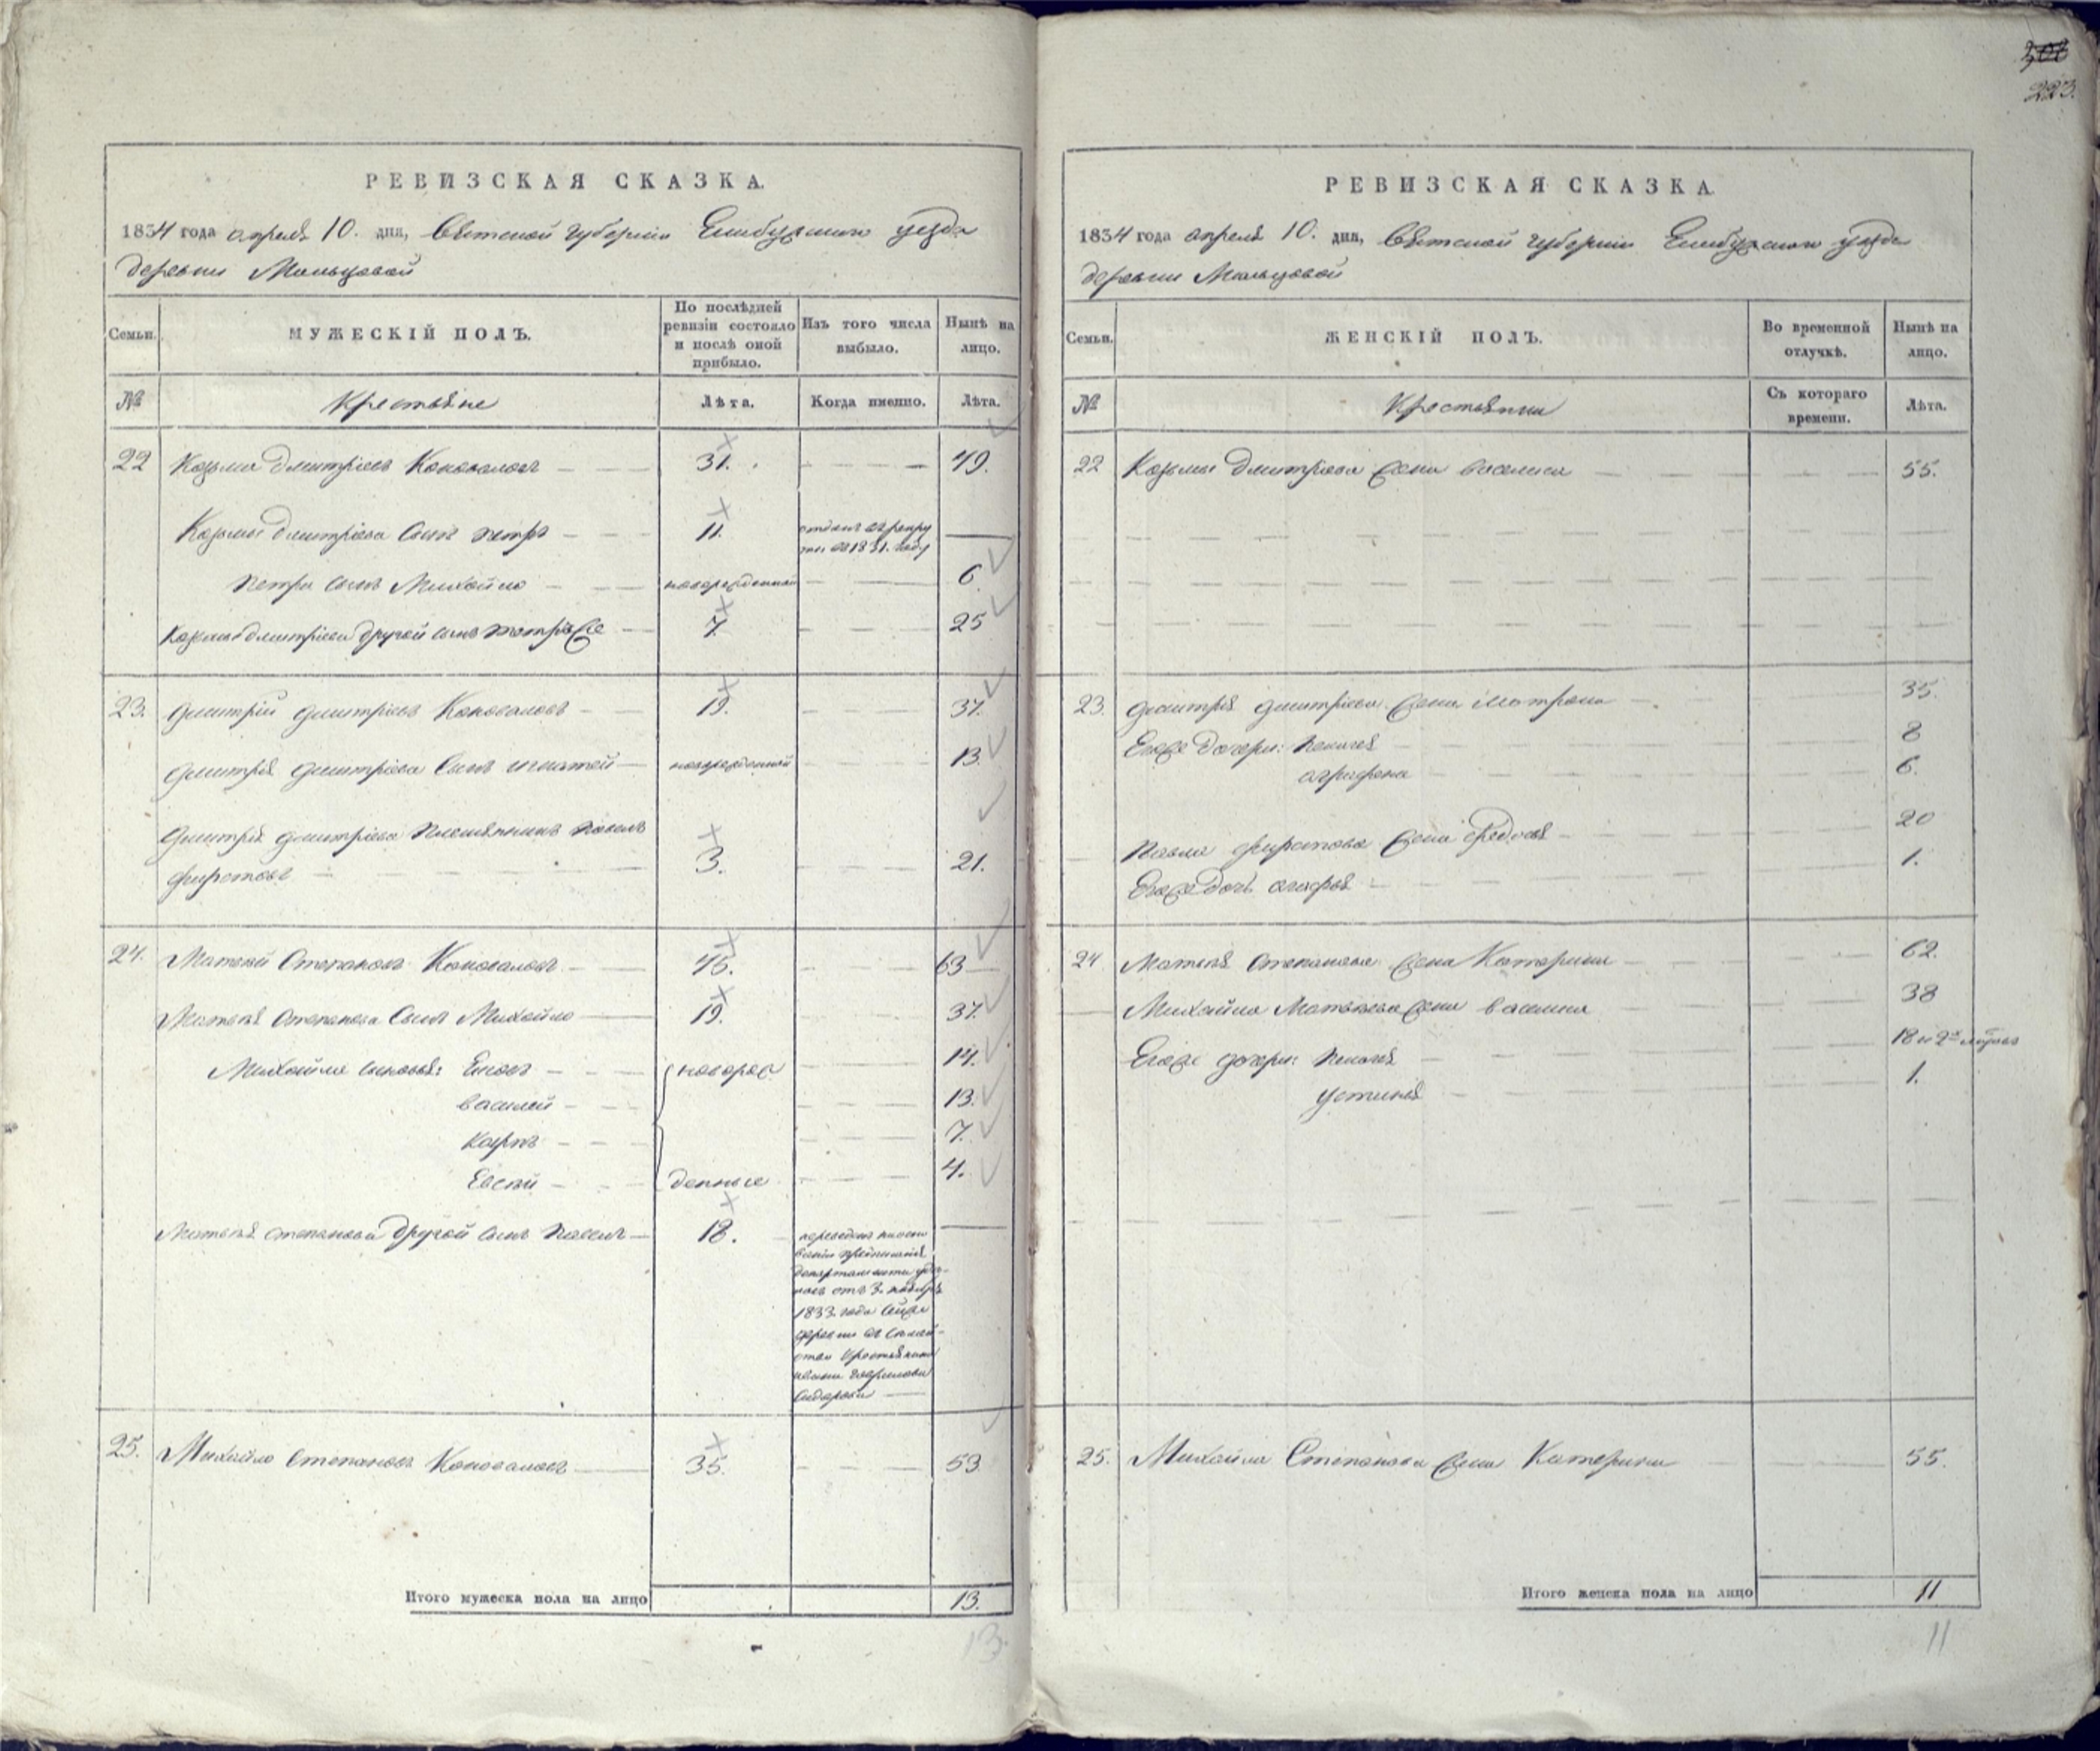 508
223.
РЕВИЗСКАЯ СКАЗКА.
1834 года апреля 10. дня, Вятской губернии Елабужского уезда
деревни Мальцовой
Семьи.
МУЖЕСКІЙ ПОЛЪ.
По послѣдней ревизіи состояло и послѣ оной прибыло.
Изъ того числа выбыло.
Нынѣ на лицо.
№
Крестьяне
Лѣта.
Когда именно.
Лѣта.
22 Козма Дмитріевъ Коноваловъ 31. 49.
Козмы Дмитріева сынъ Петръ 11. отданъ въ рекру
ты въ 1831. году
Петра сынъ Михайло новорожденной 6
Козмы Дмитріева другой сынъ 7. 25
23. Дмитрій Дмитріевъ Коноваловъ 19. 37.
Дмитрія Дмитріева сынъ Игнатей новорожденной 13.
Дмитрія Дмитріева племянникъ Павелъ
Фирстовъ 3. 21.
24. Матвѣй Степановъ Коноваловъ 45. 63
Матвѣя Степанова сынъ Михайло 19. 37.
Михайла сыновья: новорож 14.
Василей 13.
Карпъ 7.
Евсѣй денные 4.
Матвѣя Степанова другой сынъ Павелъ 18.
департамента удѣ-
ловъ отъ 3. ноября
1833. года
деревни въ семей-
ство крестьянина
Гаврилова
Сидорова
25. Михайло Степановъ Коноваловъ 35. 53
Итого мужеска пола на лицо 13.
13.
РЕВИЗСКАЯ СКАЗКА.
1834 года апреля 10. дня, Вятской губернии Елабужского уезда
деревни Мальцовой
Семьи.
ЖЕНСКІЙ ПОЛЪ.
Во временной отлучкѣ.
Нынѣ на лицо.
№
Крестьянки
Съ котораго времени.
Лѣта.
22 Козмы Дмитріева жена Василиса 55.
23. Дмитрія Дмитріева жена Матрона 35.
Егоже дочери: Пелагея 8
Аграфена 6.
Павла Фирстова жена Федосья 20
Егоже дочь Агафья 1.
24 Матвѣя Степанова жена Катерина 62.
Михайла Матвѣева жена 38
Егоже дочери: Пелагея 18 и 2х
Устинья 1.
25. Михайла Степанова жена Катерина 55.
Итого женска пола на лицо 11
11